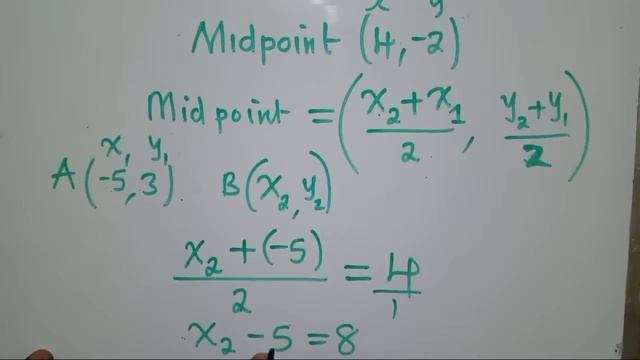 x y
Midpoint (4, -2)
Midpoint = (x₂+x₁/2, y₂+y₁/2)
x₁ y₁
A(-5, 3) B(x₂, y₂)
x₂+(-5)/2 = 4/1
x₂ - 5 = 8